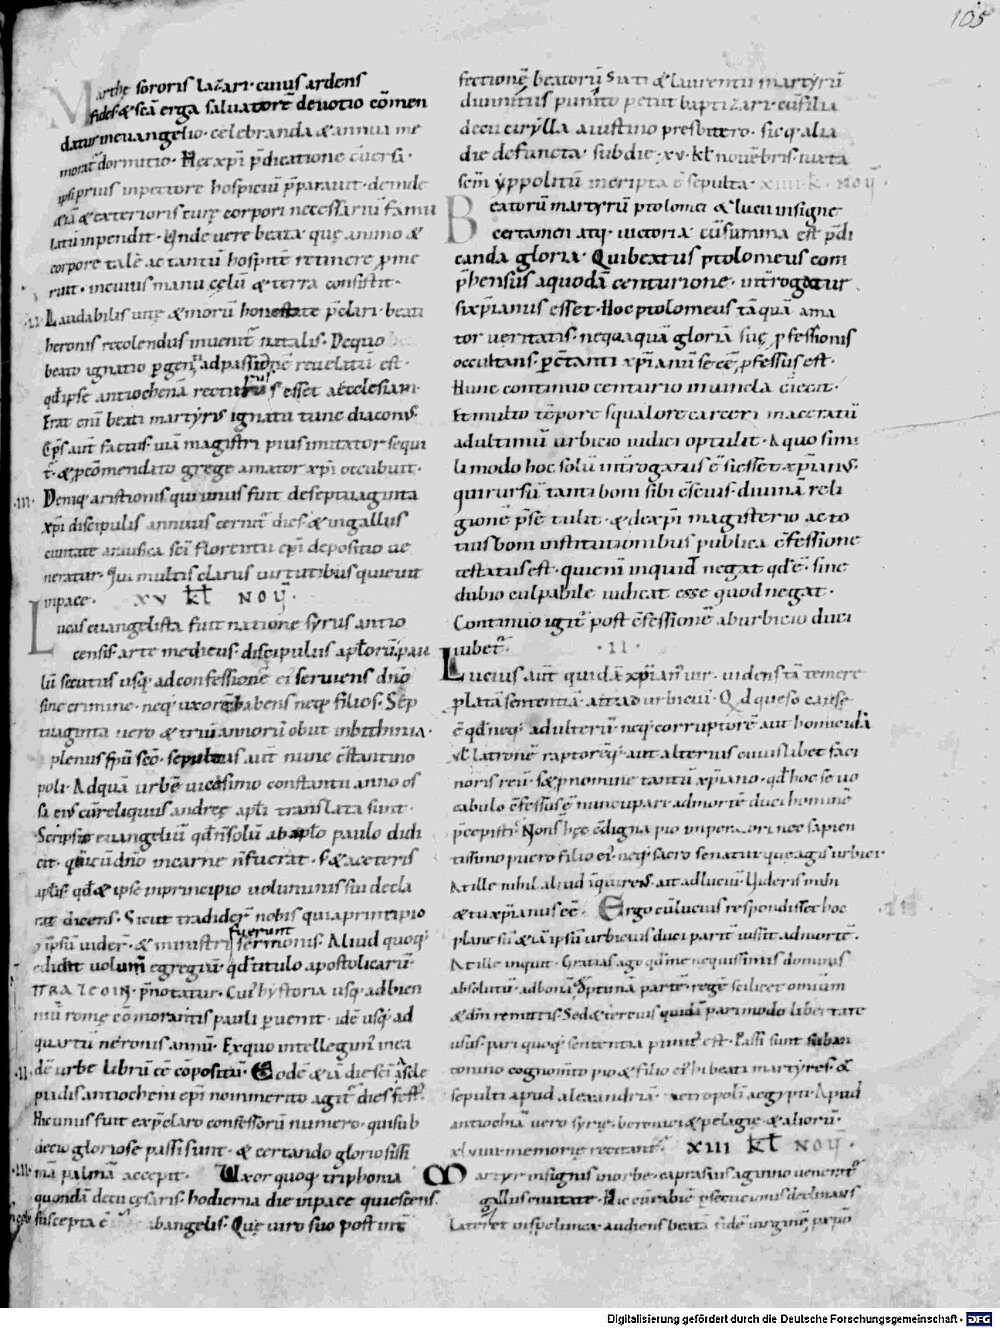 105
Marthę sororis lazari· cuius ardens
fides & scā erga saluatorē deuotio cōmen
datur in euangelio· celebranda & annua me
morat̄ dormitio· Hec xp̄i p̄dicatione
prius in pectore hospiciū p̄parauit· deinde
& exterioris curę corpori necessariū famu
latū inpendit· Unde uere beata quę animo &
corpore talē ac tantū hospitē retinere p̄me
ruit· in cuius manu cęlū & terra consistit·
·II· Laudabilis uitę & morū honestate p̄clari· beati
heronis recolendus inuenit̄ natalis· De quo
beato ignatio ad passionē reuelatū est·
qd̄ ipse antiochenā recturus esset aecclesiam·
Erat eni beati martyris ignatii tunc diaconus·
Ep̄s aut̄ factus· uiā magistri pius imitator sequi
t̄· & p̄ cōmendato grege amator xp̄i occubuit·
·III· Deniq; aristionis qui unus fuit de septuaginta
xp̄i discipulis annuus cernit̄ dies· & in gallus
ciuitate arausica scī florentii ep̄i depositio ue
neratur· Qui multis clarus uirtutibus quieuit
in pace· XV KL NOV̄·
Lucas euangelista fuit natione syrus antio
censis· arte medicus· discipulus apl̄orū· pau
lū secutus usq; ad confessionē ei seruiens dn̄o
sine crimine· neq; uxorē habens neq; filios· Sep
tuaginta uero & triū annorū obiit in bithinia·
plenus sp̄u scō· sepultus aut̄ nunc cstantino
poli· Ad quā urbē uicesimo constantii anno os
sa eius cū reliquiis andreę apl̄i translata sunt·
Scripsit euangeliū qd̄ n̄ solū ab aplo paulo didi
cit· qui cū dn̄o in carne n̄ fuerat· s; & a ceteris
aplis· qd̄ & ipse in principio uoluminis sui decla
rat dicens· Sicut tradider̄ nobis qui a principio
ipsi uider̄· & ministri fuerunt sermonis· Aliud quoq;
edidit uolum̄ egregiū· qd̄ titulo apostolicarū·
p̄notatur· Cui' hystoria usq; ad bien
niū romę cōmorantis pauli p̄uenit· id ē usq; ad
quartū neronis annū· Ex quo intellegim' in ea
·II· dē urbe librū ēē cōpositū· Eodē & iā die scī ascle
piadis antiocheni ep̄i nom̄ merito agit̄ dies fest'·
Hic unus fuit ex p̄claro confessorū numero· qui sub
decio gloriose passi sunt· & certando gloriosissi
·III· mā palmā accepit· Uxor quoq; triphonia
quondā decii cęsaris· hodierna die in pace quiescens·
suscepta ē ab angelis· Quę uiro suo post int̄
fectionē beatorū Sixti & laurentii martyrū
diuinitus punito petiit baptizari· cū filia
decii cirylla a iustino presbitero· sicq; alia
die defuncta· sub die ·XV· kl̄ nouēbris· iuxta
scm̄ yppolitū in cripta ē sepulta· XIIII· K· NOV̄·
Beatorū martyrū ptolomei & lucii insigne
certamen atq; uictoria cū summa est p̄di
canda gloria· Qui beatus ptolomeus com
p̄hensus a quodā centurione· int̄rogatur
si xp̄ianus esset· Hoc ptolomeus tāquā ama
tor ueritatis· nequaquā gloriā suę p̄fessionis
occultans· p̄ētanti xp̄ianū se eē p̄fessus est·
Hunc continuo centurio in uincla eiecit·
Et multo tēpore squalore carceri maceratū
ad ultimū urbicio iudici optulit· A quo simi
li modo hoc solū int̄rogatus ē si esset xp̄ian'·
qui rursū tanti boni sibi cscius· diuinā reli
gionē p̄se tulit· & de xp̄i magisterio ac to
tius boni institutionibus publica cfessione
testatus est· qui eni inquid negat qd̄ ē· sine
dubio culpabile iudicat esse quod negat·
Continuo igit̄ post cfessionē ab urbicio duci
iubet̄· ·II·
Lucius aut̄ quidā xp̄ian' uir· uidens tā temere
platā sententiā· ait ad urbiciū· Qd queso causę
ē qd̄ neq; adulterū neq; corruptorē aut homicidā
ul̄ latronē raptorēq; aut alterius cuiuslibet faci
noris reū· s; p̄ nomine tantū xp̄iano· qd̄ hoc se uo
cabulo cfessus ē nuncupari ad mortē duci hominē
p̄cepisti· Non s̄ hęc cdigna pio imperatori nec sapien
tissimo puero filio ei'· neq; sacro senatui que agis urbici·
At ille nihil aliud inquirens· ait ad luciū· Uideris mihi
& tu xp̄ianus eē· Ergo cū lucius respondisset hoc ·III·
plane sū· & iā ipsū urbicius duci parit̄ iussit ad mortē·
At ille inquit· Gratias ago qd̄ me nequissimis dominis
absolutū· ad bonū & optimū patrē· regē scilicet omium
& dn̄m remittis· Sed & tercius quidā pari modo libertate
usus· pari quoq; sententia punit' est· Passi sunt sub an
tonino cognom̄to pio & filio ei' hi beati martyres· &
sepulti apud alexandriā· metropolī aegypti· Apud
antiochiā uero syrię· beronici & pelagię & aliorū·
xl viiii· memoria recitant̄· XIII KL NOV̄·
Martyr insignis in orbe· caprasius aginno uenerat'
gallię ciuitate· Hic cū rabiē p̄secucionis declinans
lateret in spelunca· audiens beatā fidē uirginē p̄ xp̄o
Digitalisierung gefördert durch die Deutsche Forschungsgemeinschaft - DFG